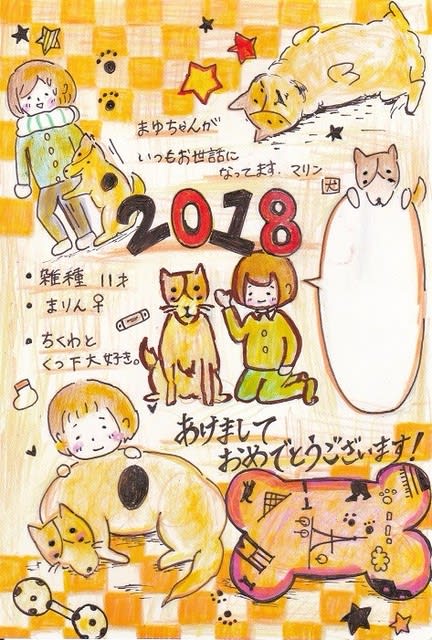 まゆちゃんが
いつもお世話に
なってます。マリン
犬
2018
・雑種 11才
・まりん♀
・ちくわと
くつ下大好き。
あけまして
おめでとうございます!